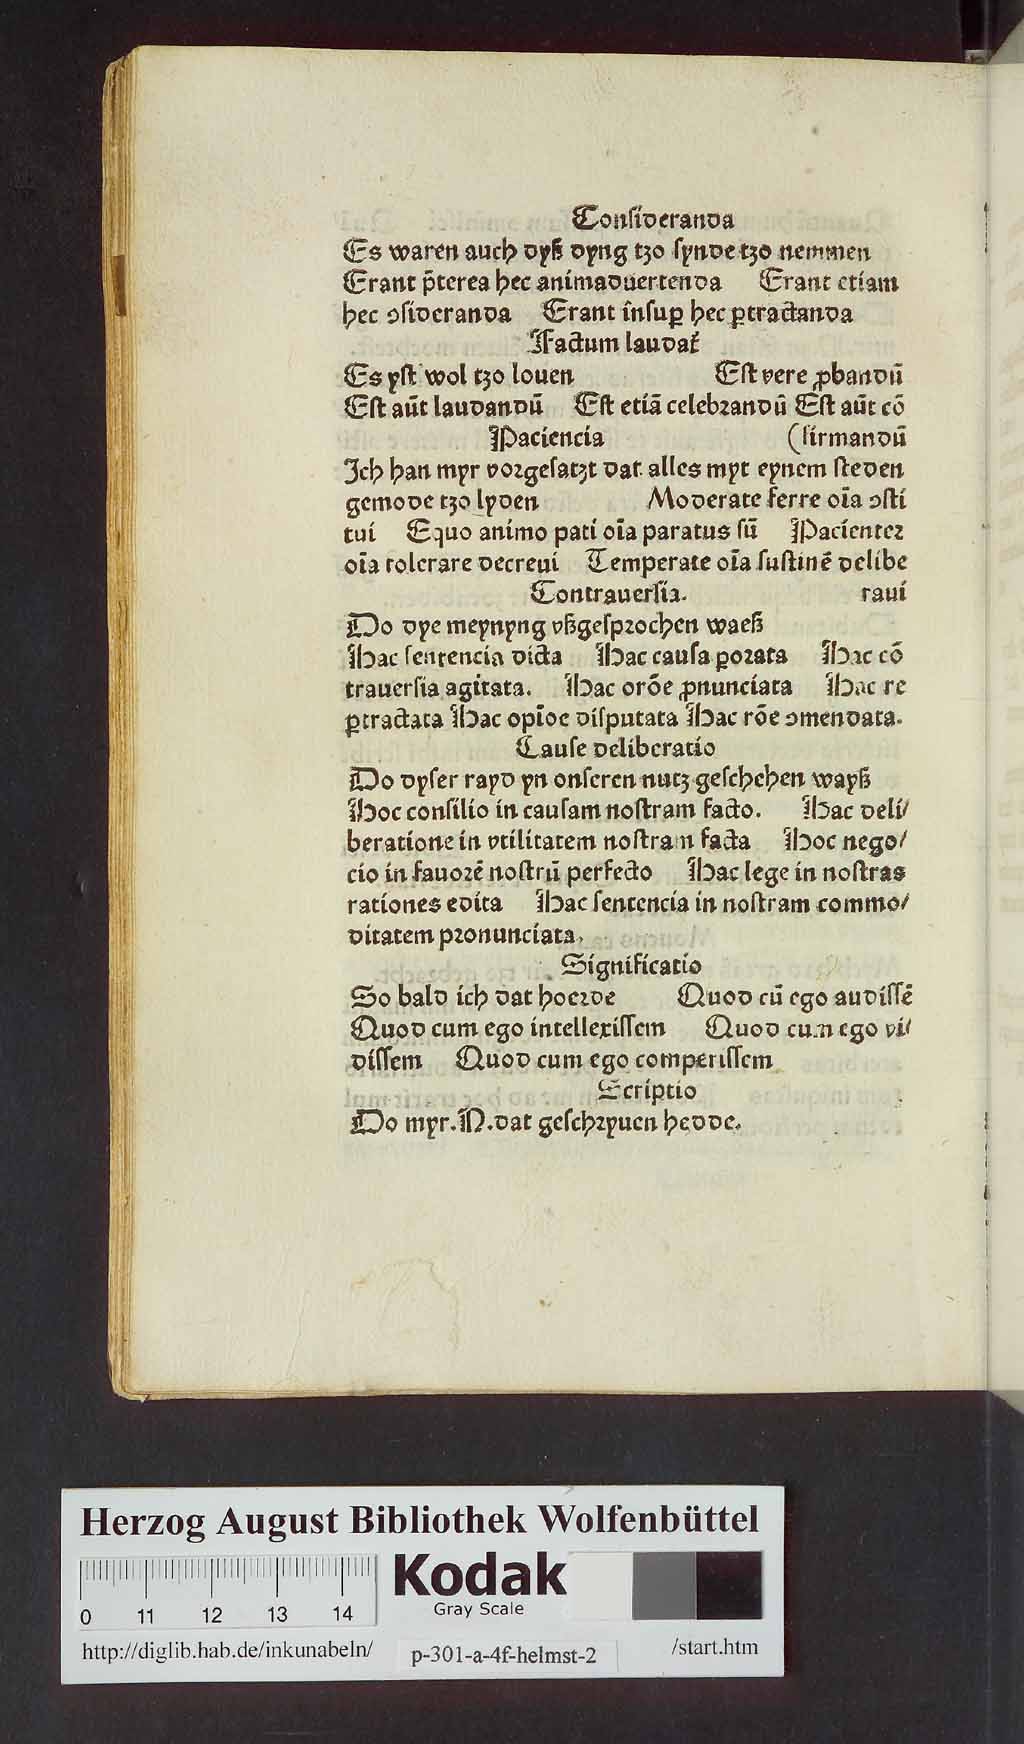 Conſideranda
Es waren auch dyß dyng tzo ſynde tzo nemmen
Erant p̄terea hec animaduertenda Erant etiam
hec ↄſideranda Erant inſuꝑ hec ꝑtractanda
Factum laudat̉
Es yſt wol tzo louen Eſt vere ꝓbandū
Eſt aūt laudandū Eſt etiā celebꝛandū Eſt aūt cō
Paciencia (firmandū
Ich han myr voꝛgeſatzt dat alles myt eynem ſteden
gemode tzo lyden Moderate ferre oīa ↄſti
tui Equo animo pati oīa paratus ſū Pacienteꝛ
oīa tolerare decreui Temperate oīa ſuſtinē delibe
Contrauerſia. raui
Do dye meynyng vßgeſpꝛochen waeß
Hac ſentencia dicta Hac cauſa ꝑoꝛata Hac cō
trauerſia agitata. Hac orōe ꝓnunciata Hac re
ꝑtractata Hac opīoe diſputata Hac rōe ↄmendata.
Cauſe deliberatio
Do dyſer rayd yn onſeren nutz geſchehen wayß
Hoc conſilio in cauſam noſtram facto. Hac deli/
beratione in vtilitatem noſtram facta Hoc nego/
cio in fauoꝛē noſtrū perfecto Hac lege in noſtras
rationes edita Hac ſentencia in noſtram commo/
ditatem pꝛonunciata.
Significatio
So bald ich dat hoeꝛde Quod cū ego audiſſē
Quod cum ego intellexiſſem Quod cum ego vi/
diſſem Quod cum ego comperiſſem
Scriptio
Do myr.N.dat geſchꝛyuen hedde.
Herzog August Bibliothek Wolfenbüttel
Kodak
Gray Scale
0 11 12 13 14
http://diglib.hab.de/inkunabeln/ p-301-a-4f-helmst-2 /start.htm